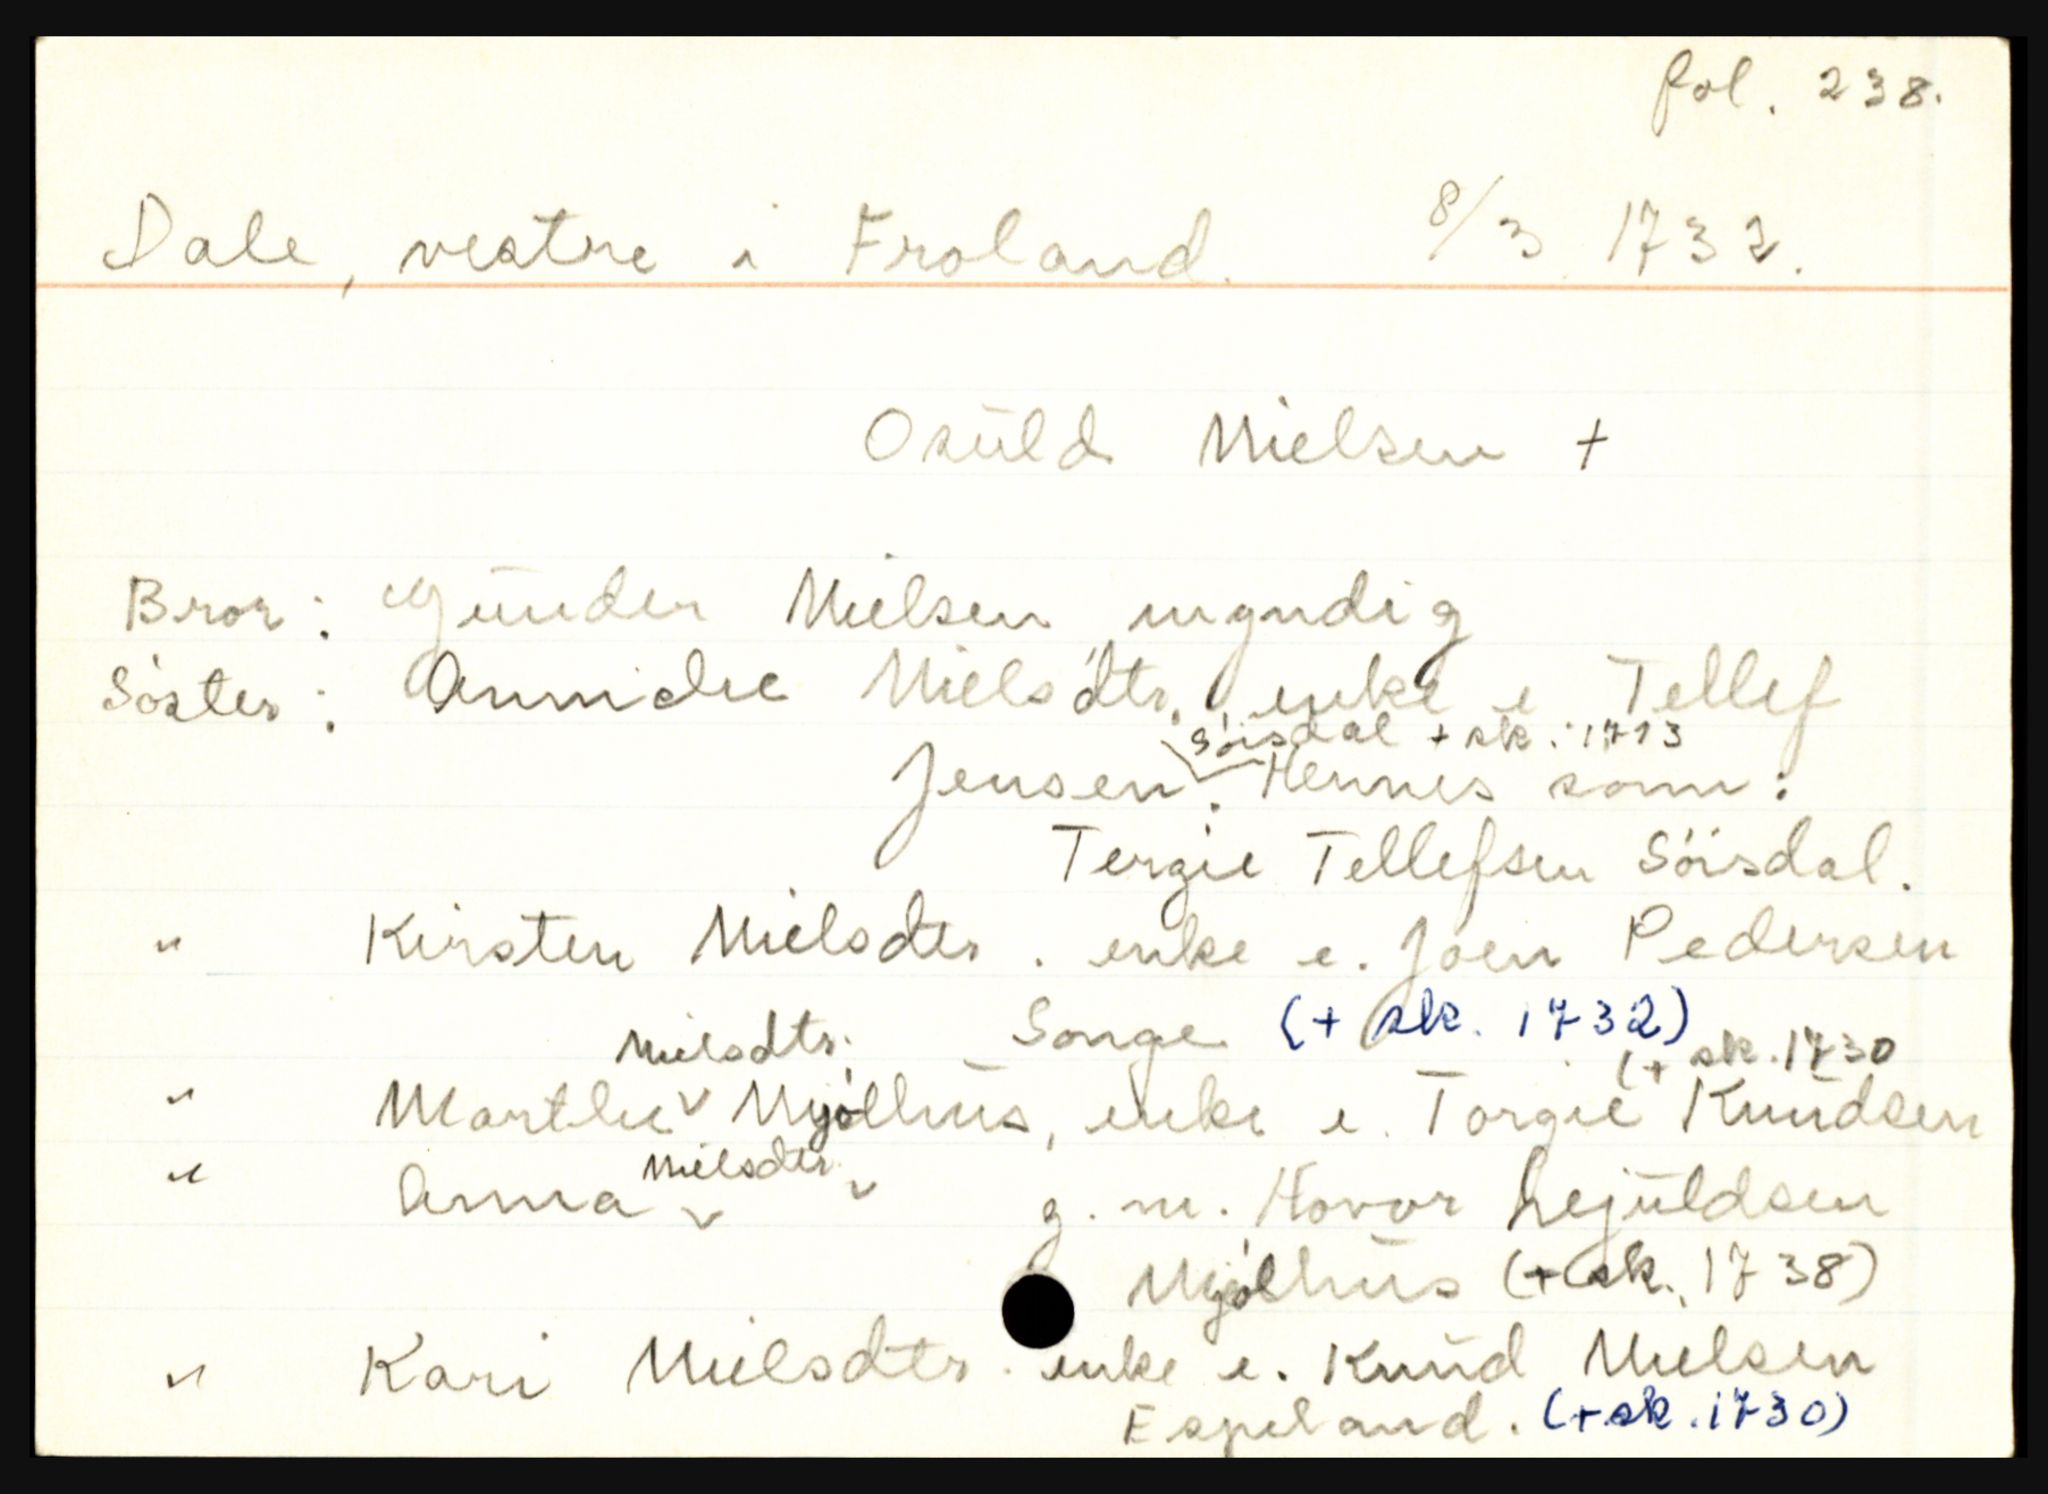 fol. 238.
Dale, vestre i Froland. 8/3 1732.
Osūld Nielsen +
Bror: Gūnder Nielsen myndig
Söster: Anniche Nielsdtr. enke e Tellef
Söisdal + sk. 1713
Jensen. Hennes sønn:
Tergie Tellefsen Söisdal.
" Kirsten Nielsdtr. enke e. Joen Pedersen
Songe (+ sk. 1732)
Nielsdtr. (+ sk. 1730
" Marthe v Mjölhūs, enke e. Torgie Knūdsen
Nielsdtr.
" Anna v v g. m. Hovor Lejūldsen
Mjölhūs (+ sk. 1738)
" Kari Nielsdtr. enke e. Knūd Nielsen
Espeland. (+ sk. 1730)